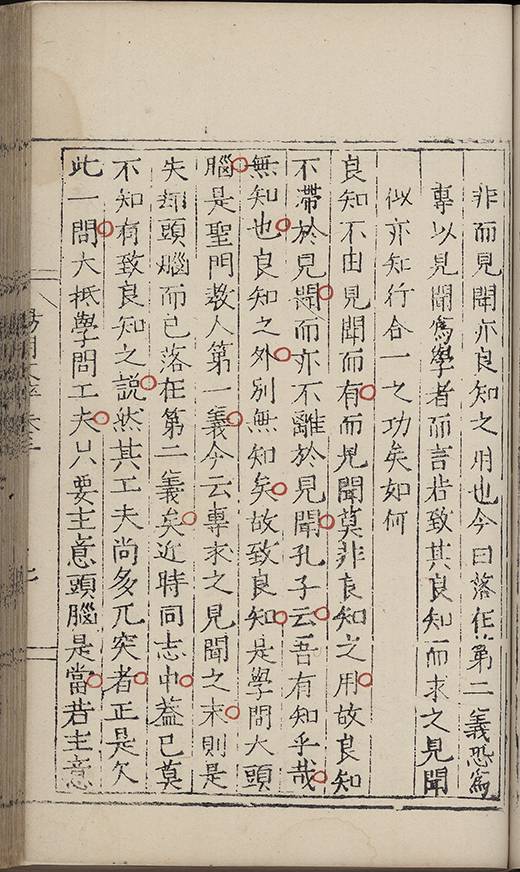 非而見聞亦良知之用也今曰落在第二義恐爲
專以見聞爲學者而言若致其良知而求之見聞
似亦知行合一之功矣如何
良知不由見聞而有而見聞莫非良知之用故良知
不滯於見聞而亦不離於見聞孔子云吾有知乎哉
無知也良知之外別無知矣故致良知是學問大頭
腦是聖門教人第一義今云專求之見聞之末則是
失却頭腦而已落在第二義矣近時同志中葢已莫
不知有致良知之說然其工夫尚多冗突者正是欠
此一問大抵學問工夫只要主意頭腦是當若主意
陽明文